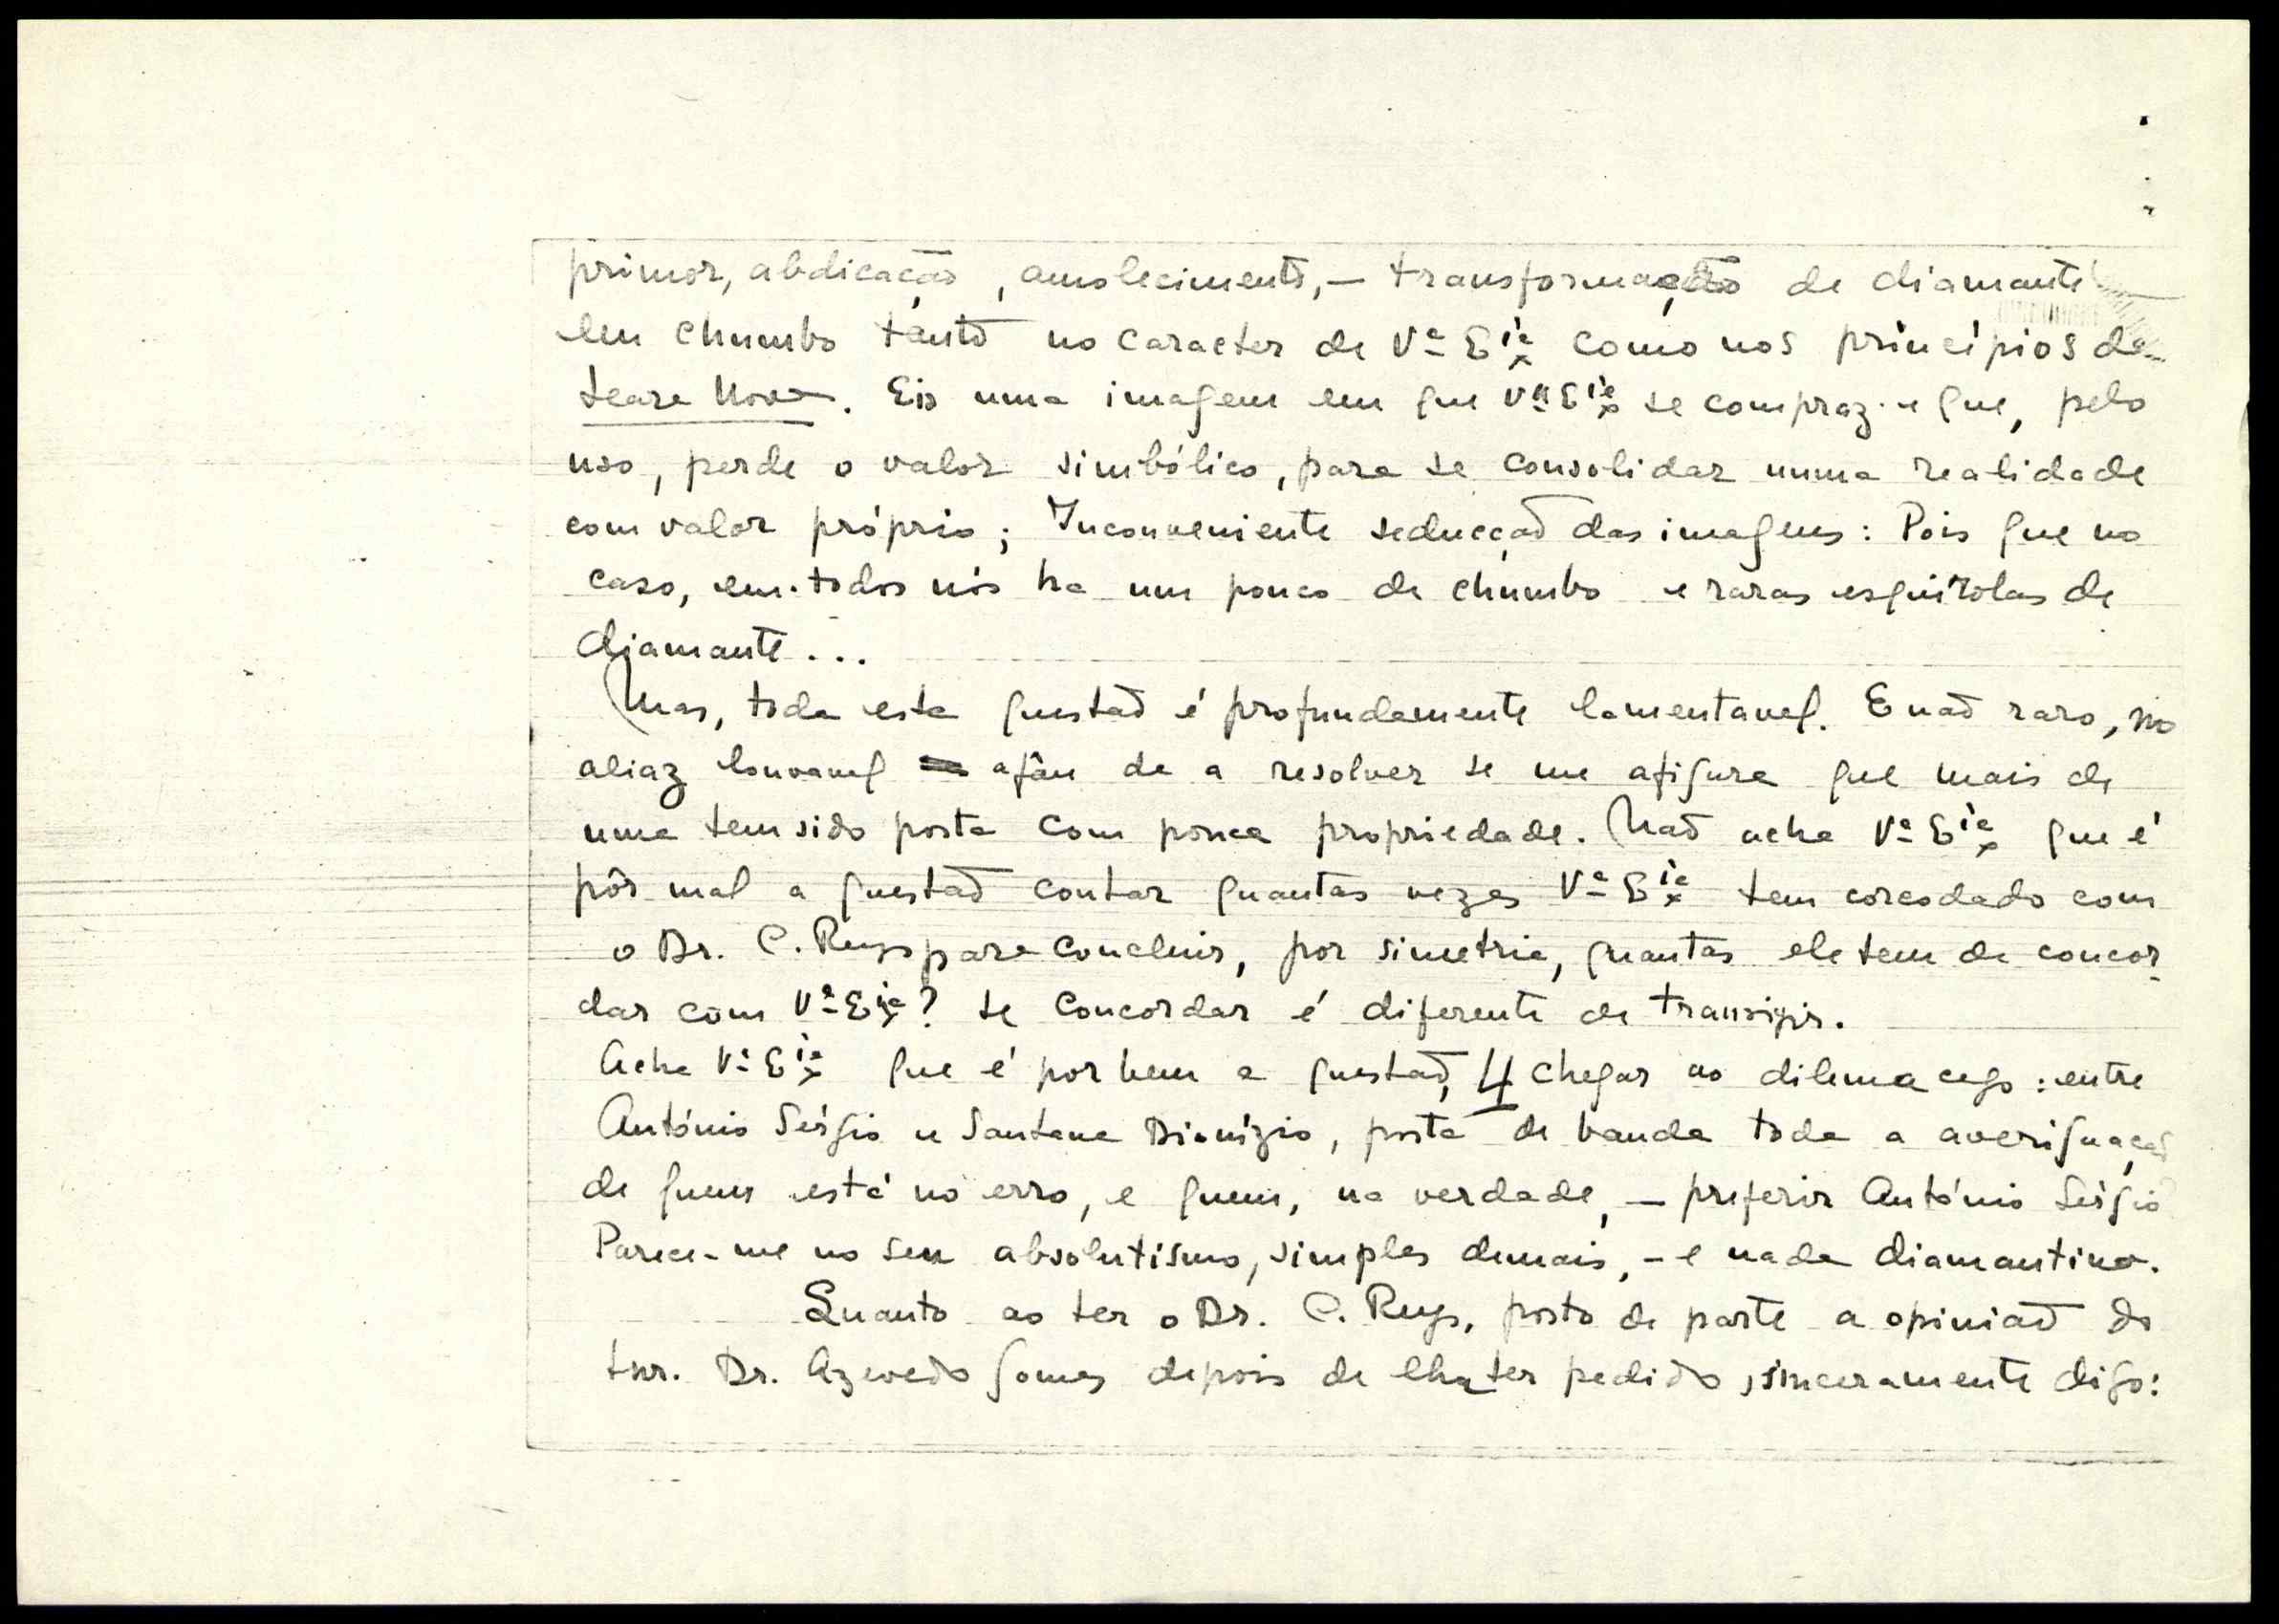 primor, abdicação, amolecimento, — transformação de diamante
em chumbo tanto no caracter de Vª Exª como nos princípios da
Seara Nova. Eis uma imagem em que Vª Exª se compraz e que, pelo
uso, perde o valor simbólico, para se consolidar numa realidade
com valor próprio; Inconveniente seducção das imagens: Pois que no
caso, em todos nós ha um pouco de chumbo e raras esquírolas de
diamante...
Mas, toda esta questão é profundamente lamentavel. E não raro, no
aliaz louvavel afân de a resolver se me afigura que mais de
uma tem sido posta com pouca propriedade. Não acha Vª Exª que é
pôr mal a questão contar quantas vezes Vª Exª tem corcodado com
o Dr. C. Reys para concluir, por simetria, quantas ele tem de concor-
dar com Vª Exª? Se concordar é diferente de transigir.
Acha Vª Exª que é por bem a questão, chegar ao dilema cego: entre
António Sérgio e Santana Dionízio, posta de banda toda a averiguação
de quem está no erro, e quem, na verdade, — preferir António Sérgio
Parece-me no seu absolutismo, simples demais, - e nada diamantino.
Quanto ao ter o Dr. C. Reys, posto de parte a opinião do
Snr. Dr. Azevedo Gomes depois de lha ter pedido, sinceramente digo: